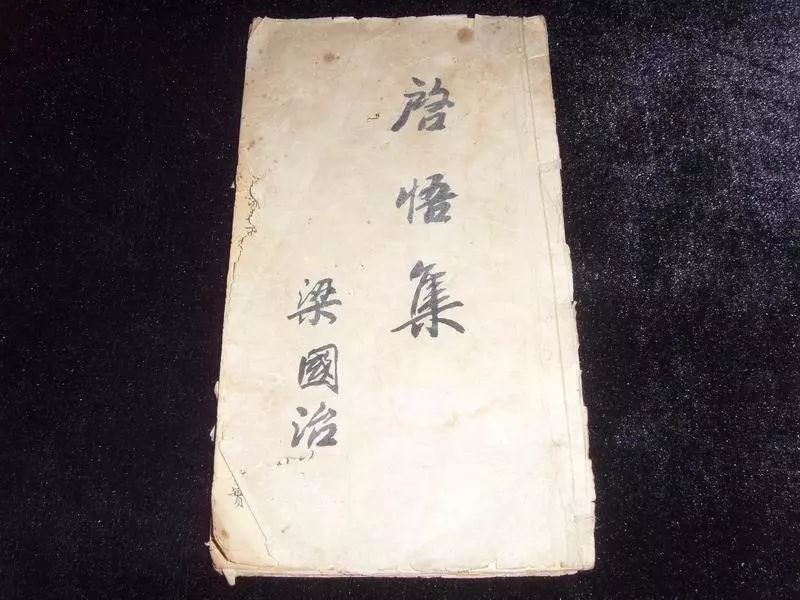 啓悟集
梁國治
實